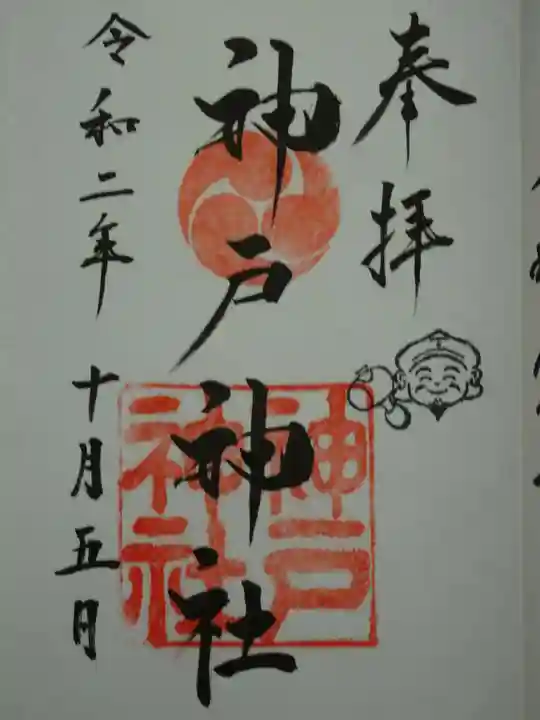 奉拝
神戸神社
神戸神社
令和二年十月五日